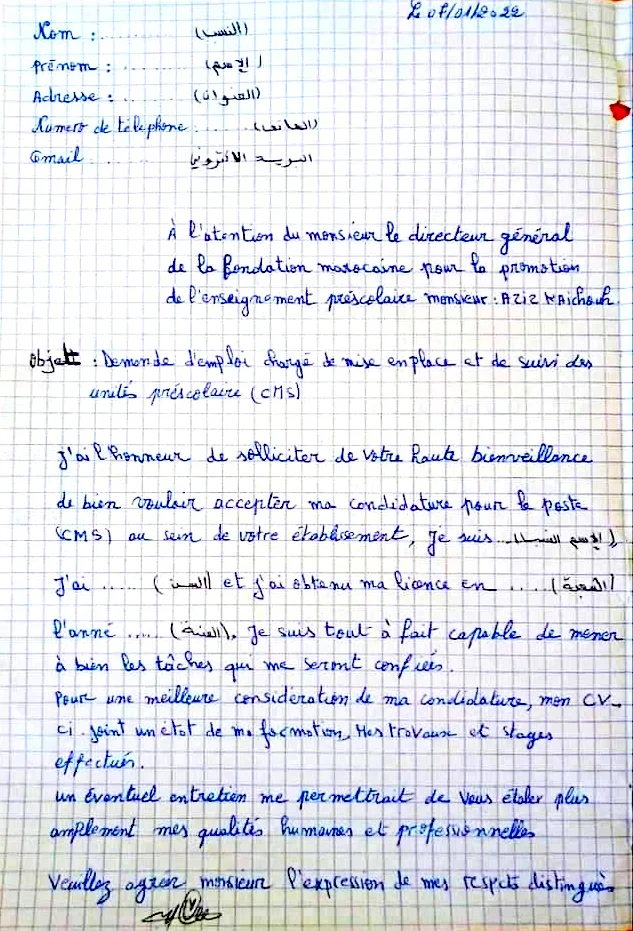 Le 07/01/2022
Nom : ............ (النسب)
Prénom : ............ (الإسم)
Adresse : ............ (العنوان)
Numero de téléphone ......... (الهاتف)
Email ............ البريد الالكتروني
À l'atention du monsieur le directeur général
de la fondation marocaine pour la promotion
de l'enseignement préscolaire monsieur : Aziz Kaichouh.
Objet : Demande d'emploi chargé de mise en place et de suivi des
unités préscolaire (CMS)
J'ai l'honneur de solliciter de votre haute bienveillance
de bien vouloir accepter ma candidature pour le poste
(CMS) au sein de votre établisement, Je suis ... (الإسم النسب)
J'ai ...... (السن) et j'ai obtenu ma licence en ..... (الشعبة)
l'anné ..... (السنة). Je suis tout à fait capable de mener
à bien les tâches qui me seront confiées.
Pour une meilleure considération de ma candidature, mon CV
ci-joint un état de ma formation, Mes travaux et stages
effectués.
un éventuel entretien me permettrait de vous étaler plus
amplement mes qualités humaines et professionnelles
Veuillez agréer monsieur l'expression de mes respects distingués